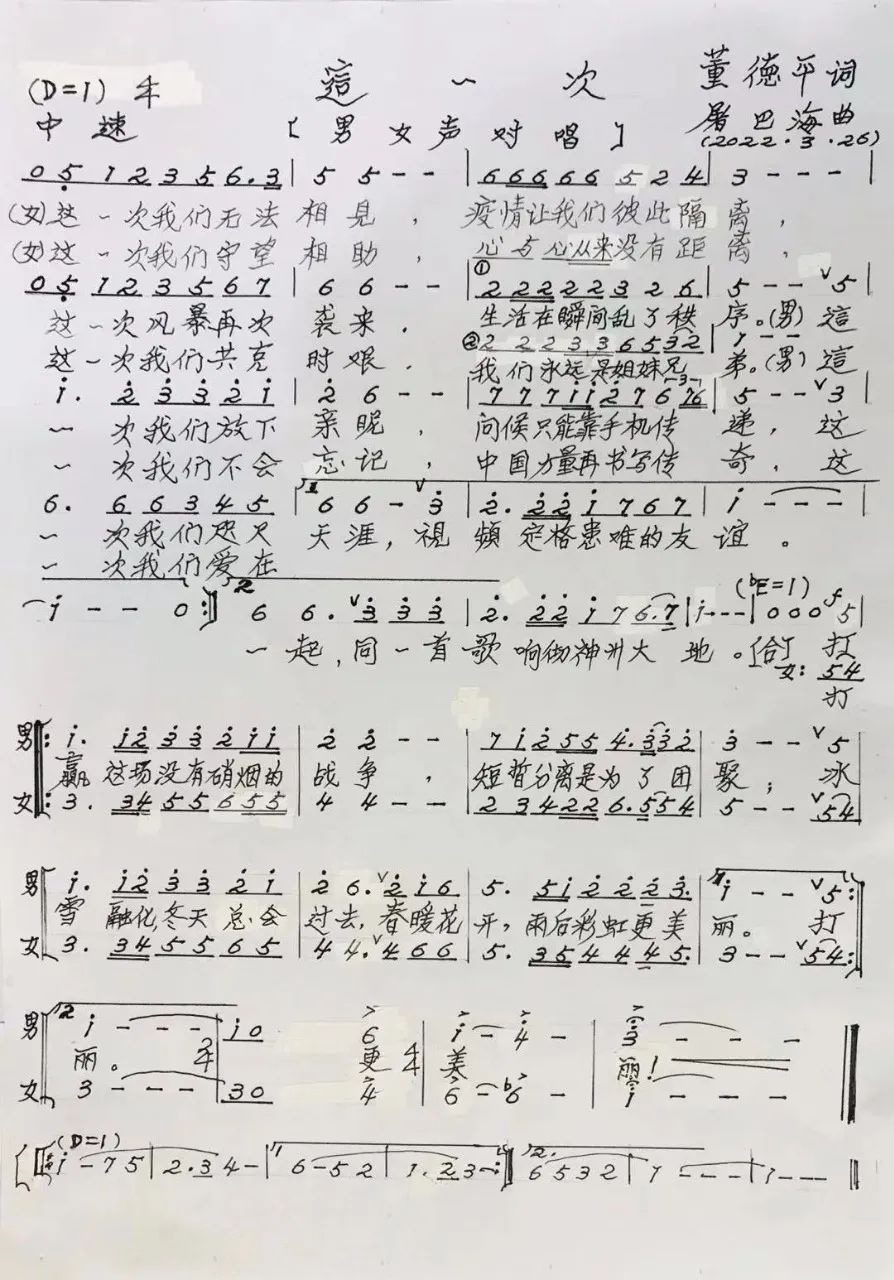 (D=1) 4/4 這一次 董德平词
中速 [男女声对唱] 屠巴海曲
(2022.3.26)
0 5 1 2 3 5 6. 3 | 5 5 - - | 6 6 6 6 6 5 2 4 | 3 - - - |
(女)这一次我们无法相見，疫情让我们彼此隔离，
(女)这一次我们守望相助，心与心从来没有距离，
0 5 1 2 3 5 6 7 | 6 6 - - | ① 2 2 2 2 2 3 2 6 | 5 - - ∨ 5 |
这一次风暴再次袭来．生活在瞬间乱了秩序。(男)這
② 2 2 2 3 3 6 5 3 2 | 1 - -
这一次我们共克时艰．我们永远是姐妹兄弟。(男)這
i. 2 3 3 2 i | 2 6 - - | 7 7 7 i i 2 7 6 7 6 | 5 - - ∨ 3 |
一次我们放下亲昵，问候只能靠手机传递，这
一次我们不会忘记，中国力量再书写传奇，这
6. 6 6 3 4 5 | 1 6 6 - ∨ 3 | 2. 2 2 i 7 6 7 | i - - - |
一次我们咫尺天涯，視頻定格患难的友谊。
一次我们爱在
i - - 0 :| 2 6 6. ∨ 3 3 3 | 2. 2 2 i 7 6. 7 | i - - - | (bE=1) 0 0 0 f 5 |
一起，同一首歌响彻神州大地。[合] 打
女: 5 4
打
男 |: i. i 2 3 3 2 i i | 2 2 - - | 7 i 2 5 5 4. 3 3 2 | 3 - - ∨ 5 |
赢这场没有硝烟的战争，短暂分离是为了团聚；冰
女 |: 3. 3 4 5 5 6 5 5 | 4 4 - - | 2 3 4 2 2 6. 5 5 4 | 5 - - ∨ 5 4 |
男 i. i 2 3 3 2 i | 2 6. ∨ 2 i 6 | 5. 5 i 2 2 2 3. | 1 i - - ∨ 5 :|
雪融化，冬天总会过去，春暖花开，雨后彩虹更美丽。打
女 3. 3 4 5 5 6 5 | 4 4. ∨ 4 6 6 | 5. 3 5 4 4 4 5. | 3 - - ∨ 5 4 :|
男 2 i - - - | i 0 6 | i - 4 - | 3 - - - ||
丽。 2/4 更 4/4 美 丽！
女 3 - - - | 3 0 4 | 6 - b6 - | i - - - ||
[(D=1) |: i - 7 5 | 2. 3 4 - | 1 6 - 5 2 | 1. 2 3 - :| 2. 6 5 3 2 | 1 - - - | 1 - - - ||